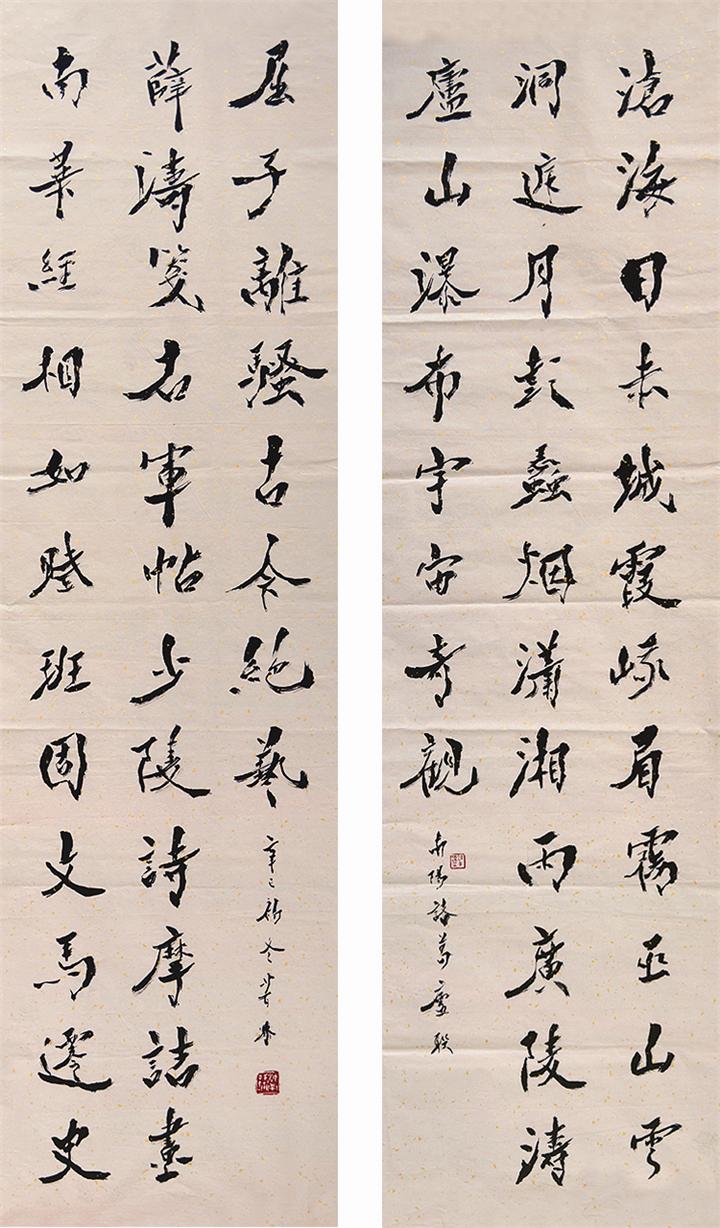 滄海日赤城霞峨眉霧巫山雲
洞庭月彭蠡烟瀟湘雨廣陵濤
廬山瀑布宇宙奇觀
南陽諸葛廬联
南華經相如賦班固文馬遷史
薛濤箋右軍帖少陵詩摩詰畫
屈子離騷古今絕藝